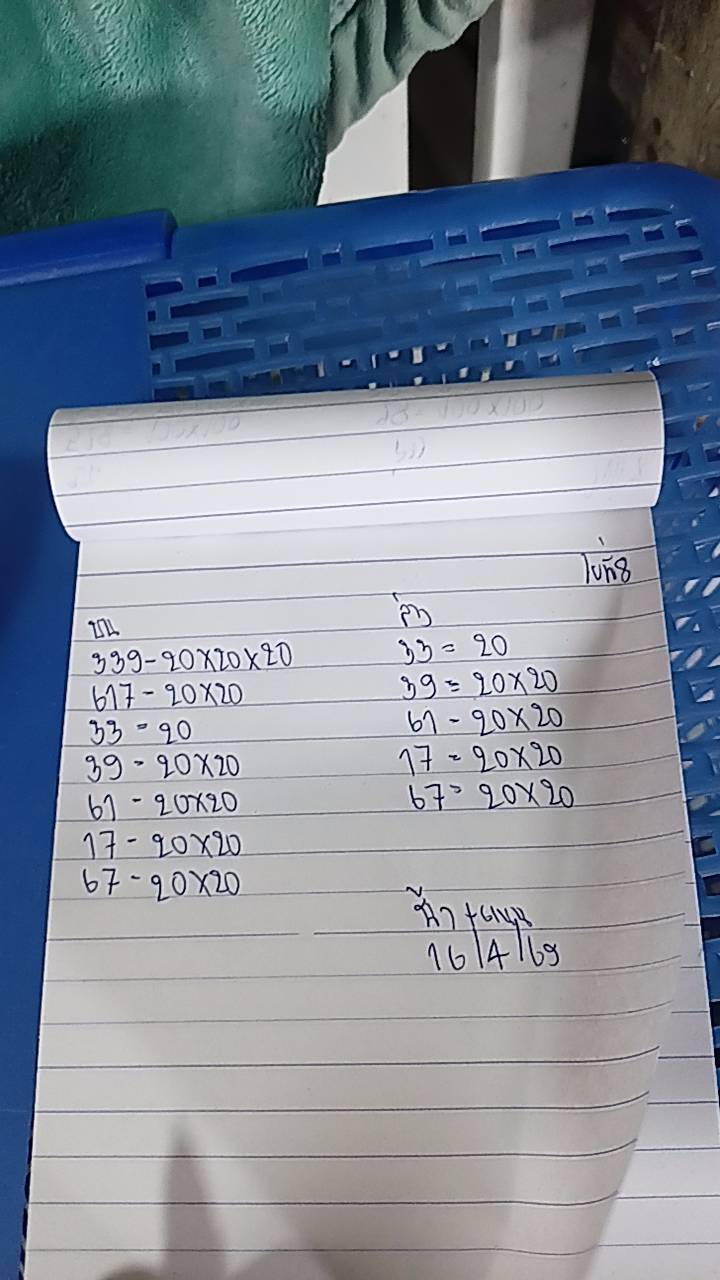 ใบที่8
บน
339-20×20×20
617-20×20
33=20
39-20×20
61-20×20
17-20×20
67-20×20
ล่าง
33=20
39=20×20
61-20×20
17=20×20
67=20×20
16/4/69